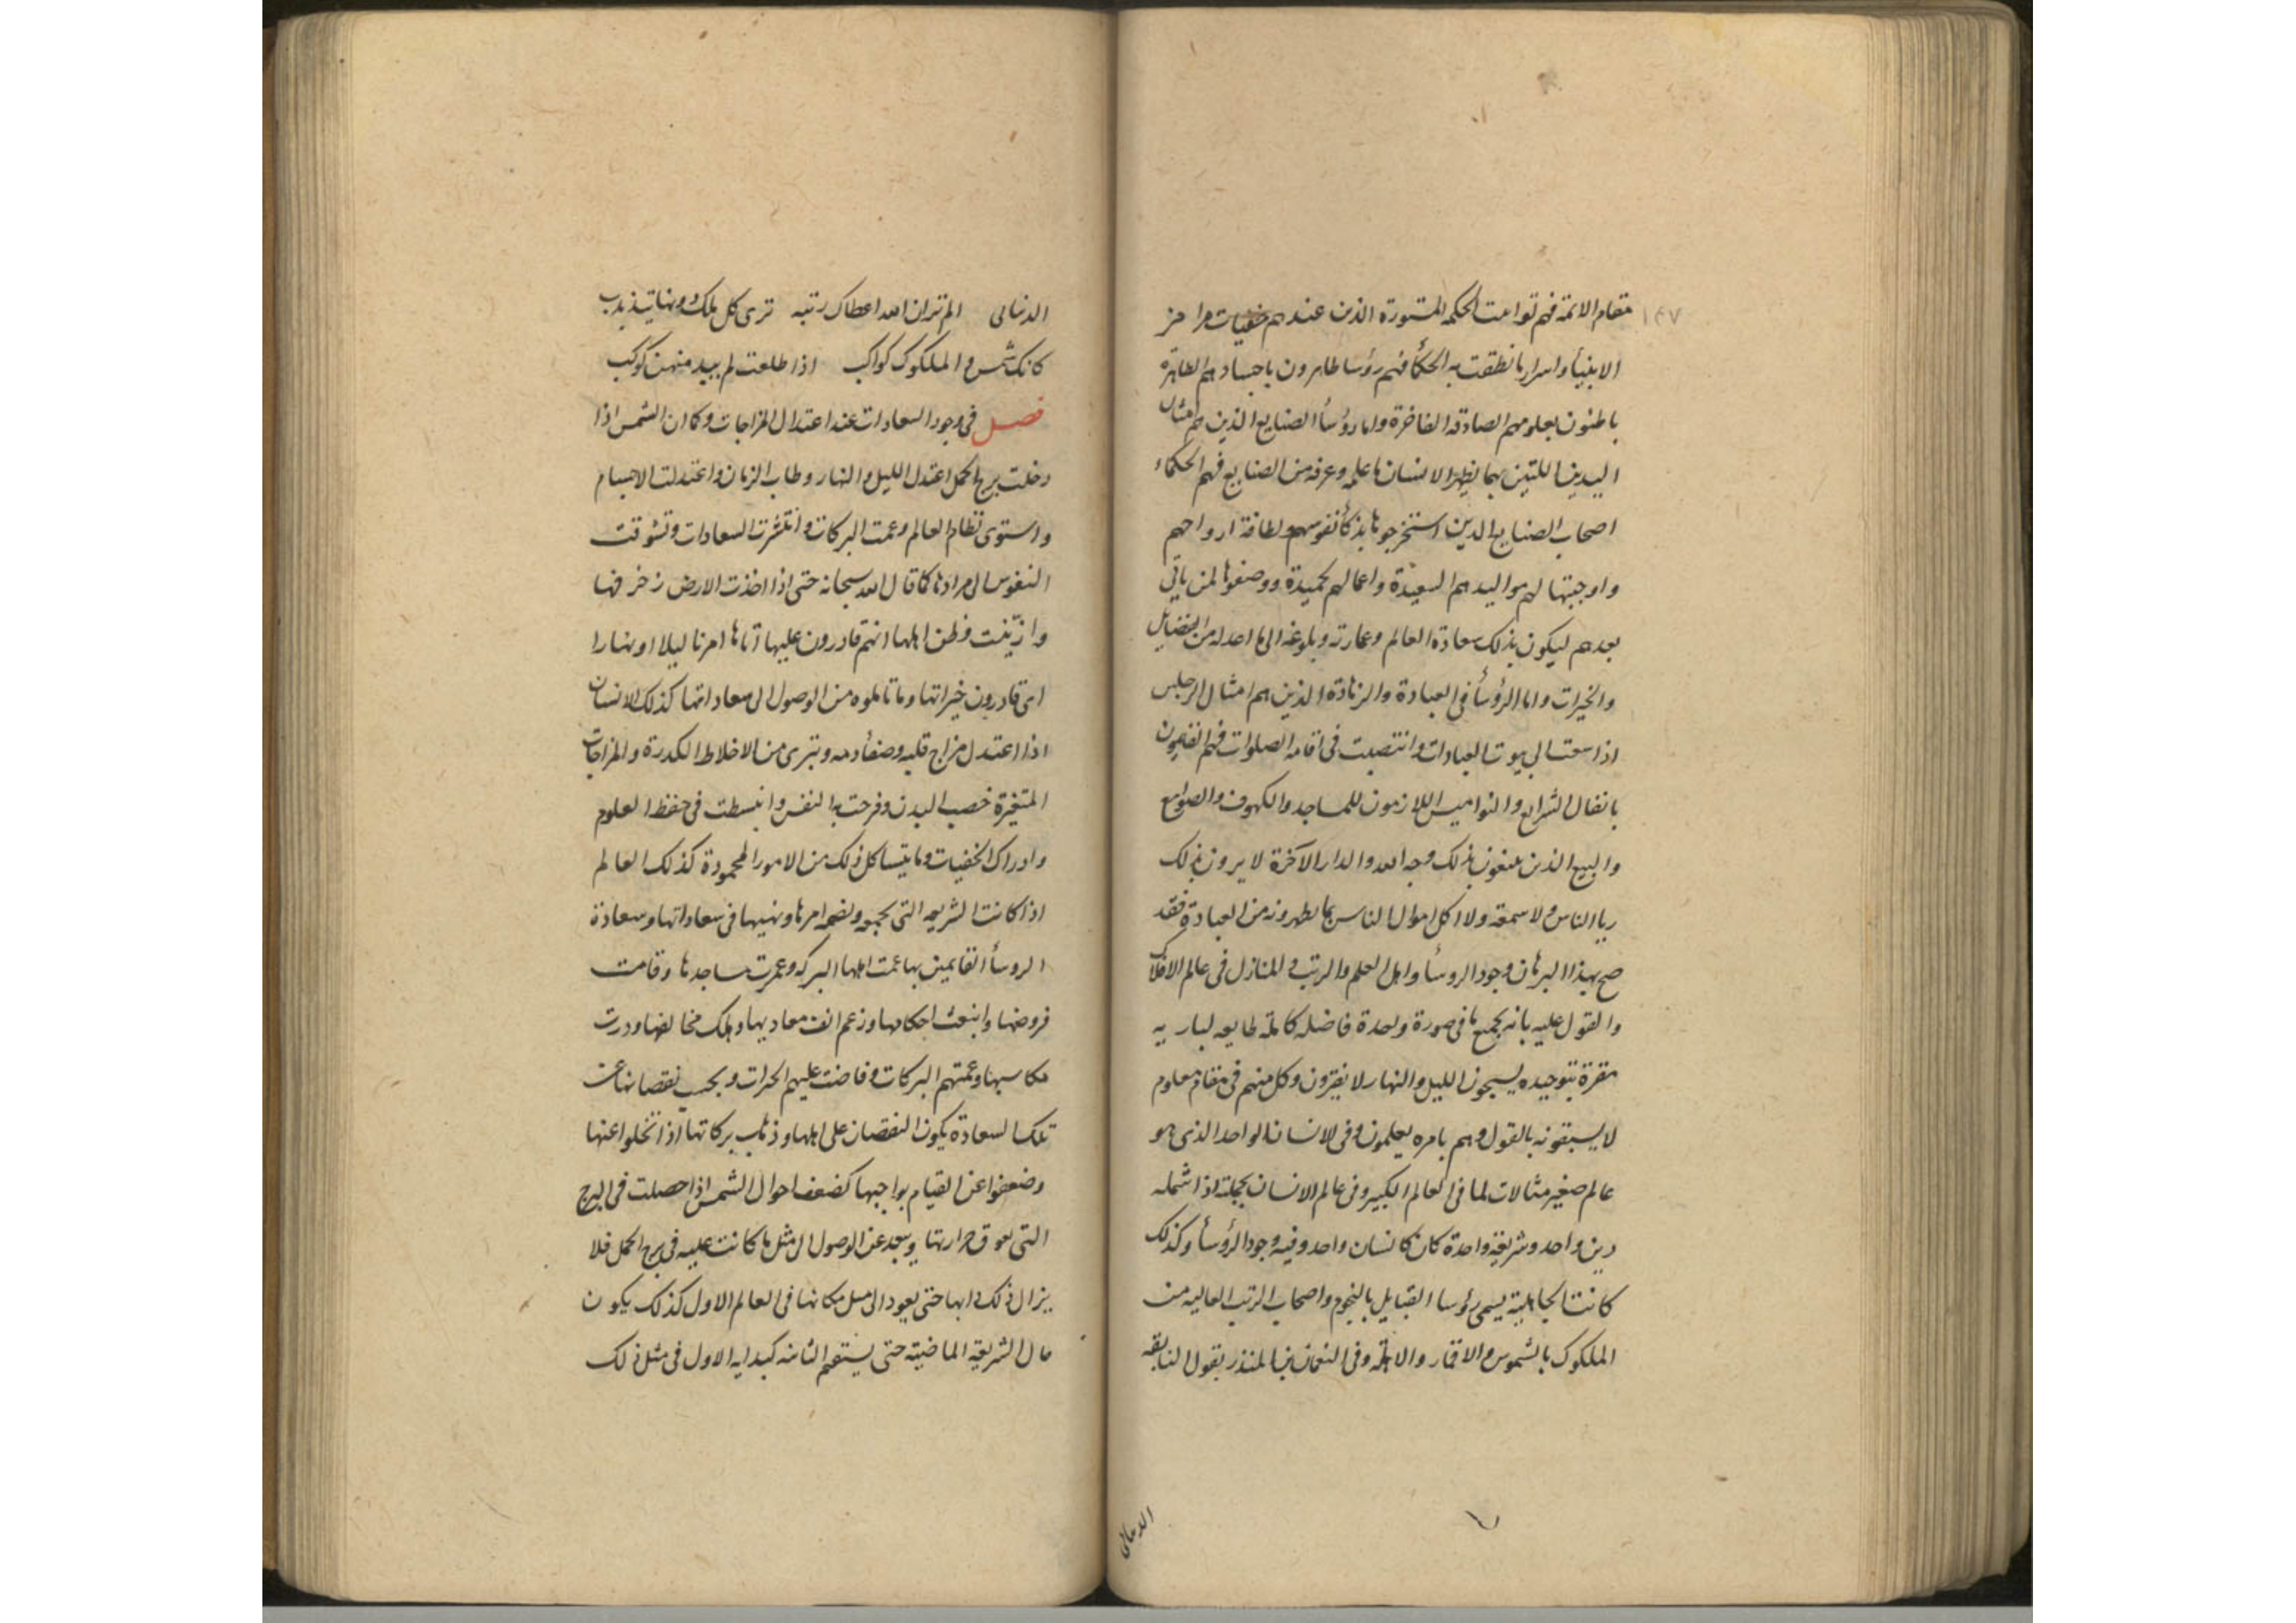 ١٤٧
مقام الائمة فهم توامت الحكمه المستورة الذين عندهم خفيات مرامز
الانبيأ واسرار ما نطقت به الحكمأ فهم رؤسا طاهرون باجسادهم الطاهرة
باطنون بعلومهم الصادقه الفاخرة واما رؤسأ الصنايع الذين هم امثال
اليدين اللتين بهما يظهر الانسان ما علمه وعرفه من الصنايع فهم الحكماء
اصحاب الصنايع الذين استخرجوها بذكأ نفوسهم ولطافة ارواحهم
واوجبتها لهم مواليدهم السعيدة واعمالهم الحميدة ووصفوها لمن ياتى
بعدهم ليكون بذلك سعادة العالم وعمارته وبلوغه الى ما اعد له من الفضايل
والخيرات واما الرؤسأ فى العبادة والزهادة الذين هم امثال الرجلين
اذا سعت الى بيوت العبادات وانتصبت فى اقامه الصلوات فهم القايمون
باثقال الشرايع والنواميس اللازمون للمساجد والكهوف والصوامع
والبيع الذين يبتغون بذلك وجه الله والدار الآخرة لا يرون بذلك
ريا الناس ولا سمعة ولا اكل اموال الناس بما يظهرونه من العبادة فقد
صح بهذا البرهان وجود الروسأ واهل العلم والرتب والمنازل فى عالم الافلاك
والقول عليه بانه بجميع ما فى صورة واحدة فاضله كاملة طايعه لباريه
مقرة بتوحيده يسبحون الليل والنهار لا يفترون وكل منهم فى مقام معلوم
لا يسبقونه بالقول وهم بامره يعلمون وفى الانسان الواحد الذى هو
عالم صغير مثالات لما فى العالم الكبير وفى عالم الانسان بجملته اذا شمله
دين واحد وشريعة واحدة كان كانسان واحد وفيه وجود الرؤسأ وكذلك
كانت الجاهلية يسمى رؤسا القبايل بالنجوم واصحاب الرتب العاليه من
الملكوك بالشموس والاقمار والاهلة وفى النعمان بن المنذر يقول النابغه
الدىىالى
الدنىاىى الم تر ان الله اعطاك رتبه ترى كل ملك دونها يتذبذب
كانك شمس والملكوك كواكب اذا طلعت لم يبد منهن كوكب
فصل فى وجود السعادات عند اعتدال المزاجات وكما ان الشمس اذا
دخلت برج الحمل اعتدل الليل والنهار وطاب الزمان واعتدلت الاجسام
واستوى نظام العالم وعمت البركات وانتشرت السعادات وتشوقت
النفوس الى مرادها كما قال الله سبحانه حتى اذا اخذت الارض زخرفها
وازّينت وظن اهلها انهم قادرون عليها اتاها امرنا ليلا او نهارا
اى قادرون خيراتها وما تاملوه من الوصول الى سعاداتها كذلك الانسان
اذا اعتدل مزاج قلبه وصفأ دمه وتبرى من الاخلاط الكدرة والمزاجات
المتغيرة خصب البدن وفرحت به النفس وانبسطت فى حفظ العلوم
وادراك الخفيات وما يتساكل ذلك من الامور المحمودة كذلك العالم
اذا كانت الشريعه التى تجمعه ويضمه امرها ونهيها فى سعاداتها وسعادة
الروسأ القايمين بها عمت اهلها البركه وعمرت مساجدها وقامت
فروضها وانبعث احكامها وزعم انف معاديها وهلك مخالفها ودرت
مكاسبها وعمتهم البركات وفاضت عليهم الخيرات وبحسب نقصانها عن
تلك السعادة يكون النقصان على اهلها وذهاب بركاتها اذا تخلوا عنها
وضعفوا عن القيام بواجبها كضعف احوال الشمس اذا حصلت فى البرج
التى تعوق حرارتها ويبعد عن الوصول الى مثل ما كانت عليه فى برج الحمل فلا
يزال ذلك دابها حتى يعود الى مثل مكانها فى العالم الاول كذلك يكون
حال الشريعة الماضية حتى يستقيم الثانيه كبدايه الاول فى مثل ذلك